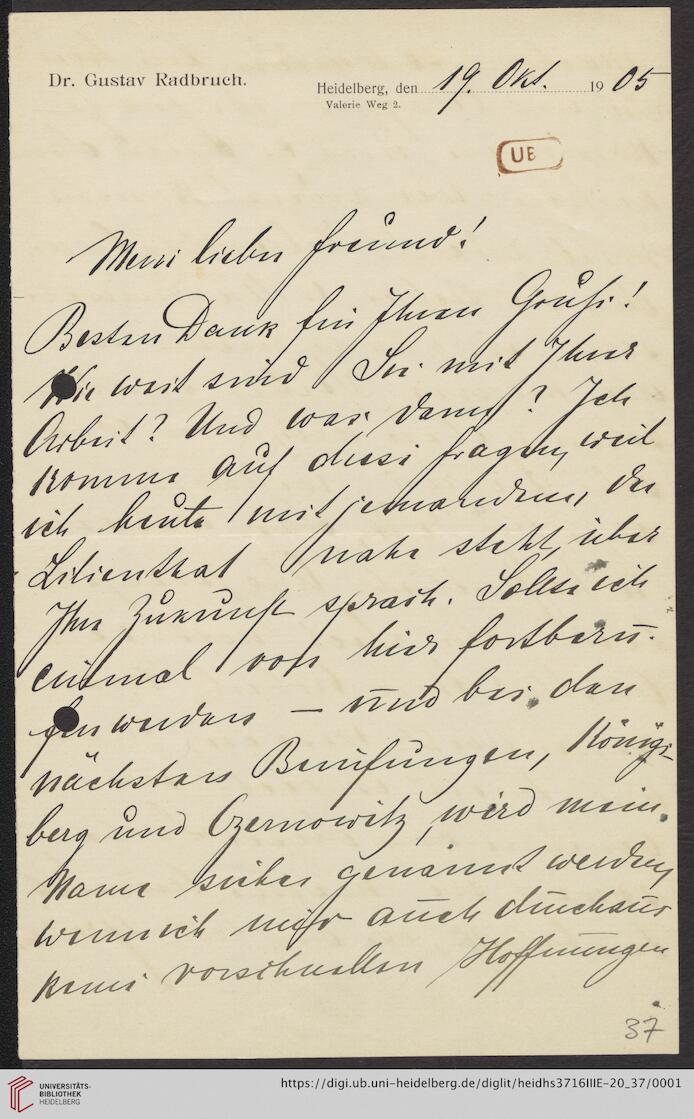 Dr. Gustav Radbruch.
Heidelberg, den 19. Okt. 1905
Valerie Weg 2.
UB
Mein lieber Freund!
Besten Dank für Ihren Gruß!
Wie weit sind Sie mit Ihrer
Arbeit? Und was dann? Ich
komme auf diese Fragen, weil
ich heute mit jemandem, der
Lilienthal nahe steht, über
Ihre Zukunft sprach. Sollte ich
einmal von hier fortberu-
fen werden – und bei den
nächsten Berufungen, Königs-
berg und Czernowitz, wird mein
Name sicher genannt werden,
wenn ich mir auch durchaus
keine vorschnellen Hoffnungen
37
UNIVERSITÄTS-
BIBLIOTHEK
HEIDELBERG
https://digi.ub.uni-heidelberg.de/diglit/heidhs3716IIIE-20_37/0001